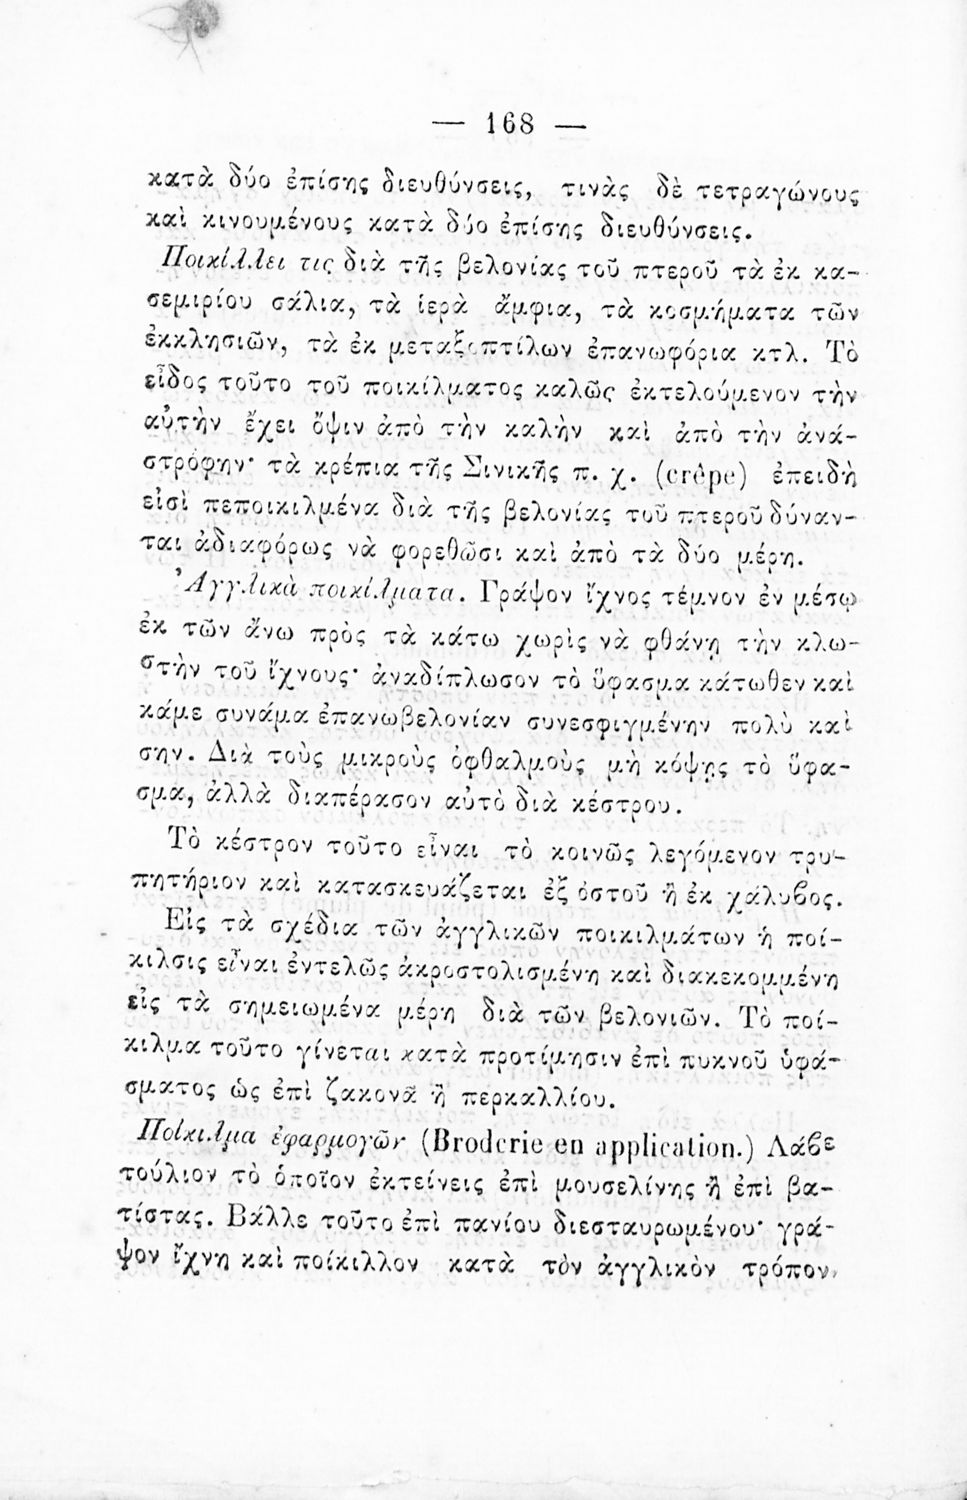 — 168 —
κατὰ δύο ἐπίσης διευθύνσεις, τινὰς δὲ τετραγώνους
καὶ κινουμένους κατὰ δύο ἐπίσης διευθύνσεις.
Ποικίλλει τις διὰ τῆς βελονίας τοῦ πτεροῦ τὰ ἐκ κα-
σεμιρίου σάλια, τὰ ἱερὰ ἄμφια, τὰ κοσμήματα τῶν
ἐκκλησιῶν, τὰ ἐκ μεταξοπτίλων ἐπανωφόρια κτλ. Τὸ
εἶδος τοῦτο τοῦ ποικίλματος καλῶς ἐκτελούμενον τὴν
αὐτὴν ἔχει ὄψιν ἀπὸ τὴν καλὴν καὶ ἀπὸ τὴν ἀνά-
στρόφην· τὰ κρέπια τῆς Σινικῆς π. χ. (crêpe) ἐπειδὴ
εἰσὶ πεποικιλμένα διὰ τῆς βελονίας τοῦ πτεροῦ δύναν-
ται ἀδιαφόρως νὰ φορεθῶσι καὶ ἀπὸ τὰ δύο μέρη.
Ἀγγλικὰ ποικίλματα. Γράψον ἴχνος τέμνον ἐν μέσῳ
ἐκ τῶν ἄνω πρὸς τὰ κάτω χωρὶς νὰ φθάνῃ τὴν κλω-
στὴν τοῦ ἴχνους· ἀναδίπλωσον τὸ ὕφασμα κάτωθεν καὶ
κάμε συνάμα ἐπανωβελονίαν συνεσφιγμένην πολὺ καὶ
σην. Διὰ τοὺς μικροὺς ὀφθαλμοὺς μὴ κόψῃς τὸ ὕφα-
σμα, ἀλλὰ διαπέρασον αὐτὸ διὰ κέστρου.
Τὸ κέστρον τοῦτο εἶναι τὸ κοινῶς λεγόμενον τρυ-
πητήριον καὶ κατασκευάζεται ἐξ ὀστοῦ ἢ ἐκ χάλυβος.
Εἰς τὰ σχέδια τῶν ἀγγλικῶν ποικιλμάτων ἡ ποί-
κιλσις εἶναι ἐντελῶς ἀκροστολισμένη καὶ διακεκομμένη
εἰς τὰ σημειωμένα μέρη διὰ τῶν βελονιῶν. Τὸ ποί-
κιλμα τοῦτο γίνεται κατὰ προτίμησιν ἐπὶ πυκνοῦ ὑφά-
σματος ὡς ἐπὶ ζακονᾶ ἢ περκαλλίου.
Ποίκιλμα ἐφαρμογῶν (Broderie en application.) Λάβε
τούλιον τὸ ὁποῖον ἐκτείνεις ἐπὶ μουσελίνης ἢ ἐπὶ βα-
τίστας. Βάλλε τοῦτο ἐπὶ πανίου διεσταυρωμένου· γρά-
ψον ἴχνη καὶ ποίκιλλον κατὰ τὸν ἀγγλικὸν τρόπον,